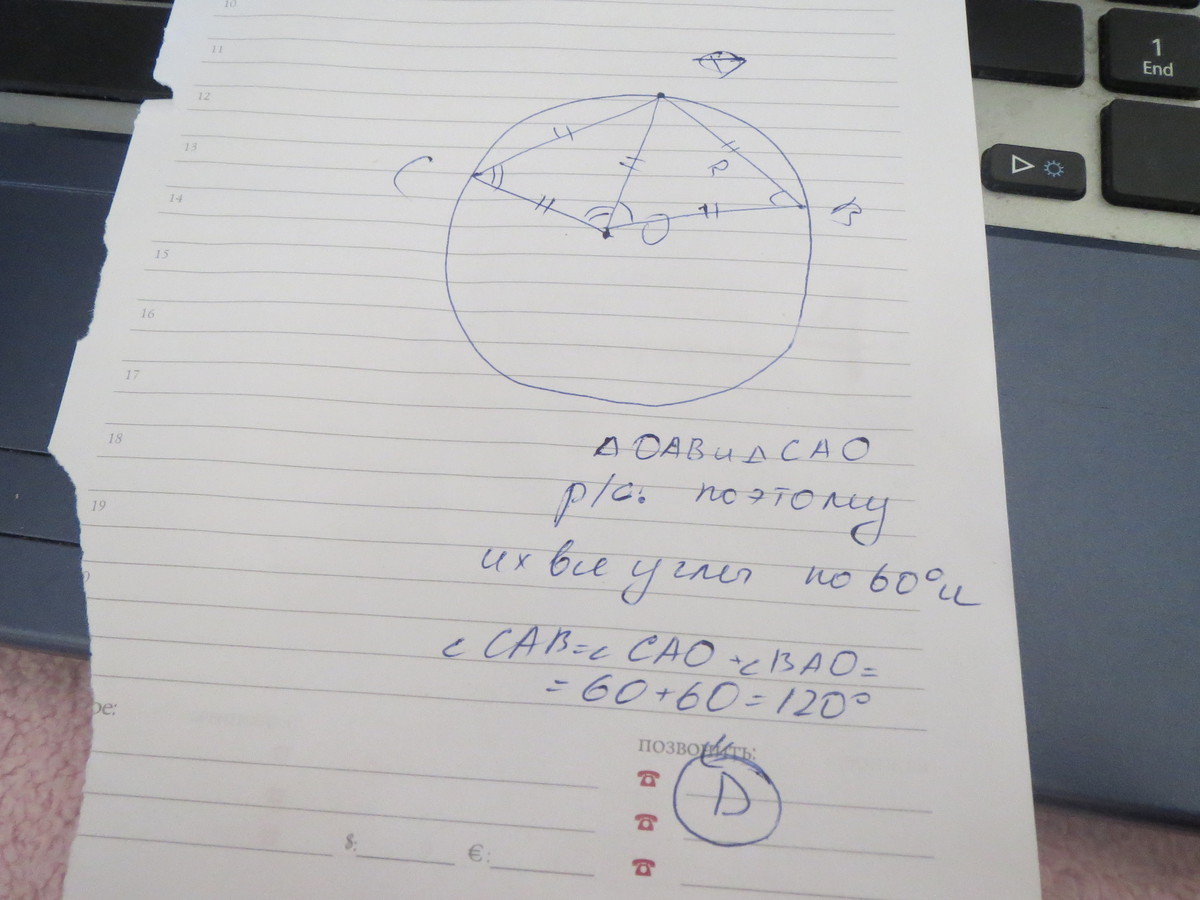 10
11
12
13
14
15
16
17
18
19
1
End
C
R
O
B
△ OAB и △ CAO
р/с. поэтому
их все углы по 60° и
∠ CAB = ∠ CAO + ∠ BAO =
= 60 + 60 = 120°
ре:
ПОЗВОНИТЬ:
D
$:
€: